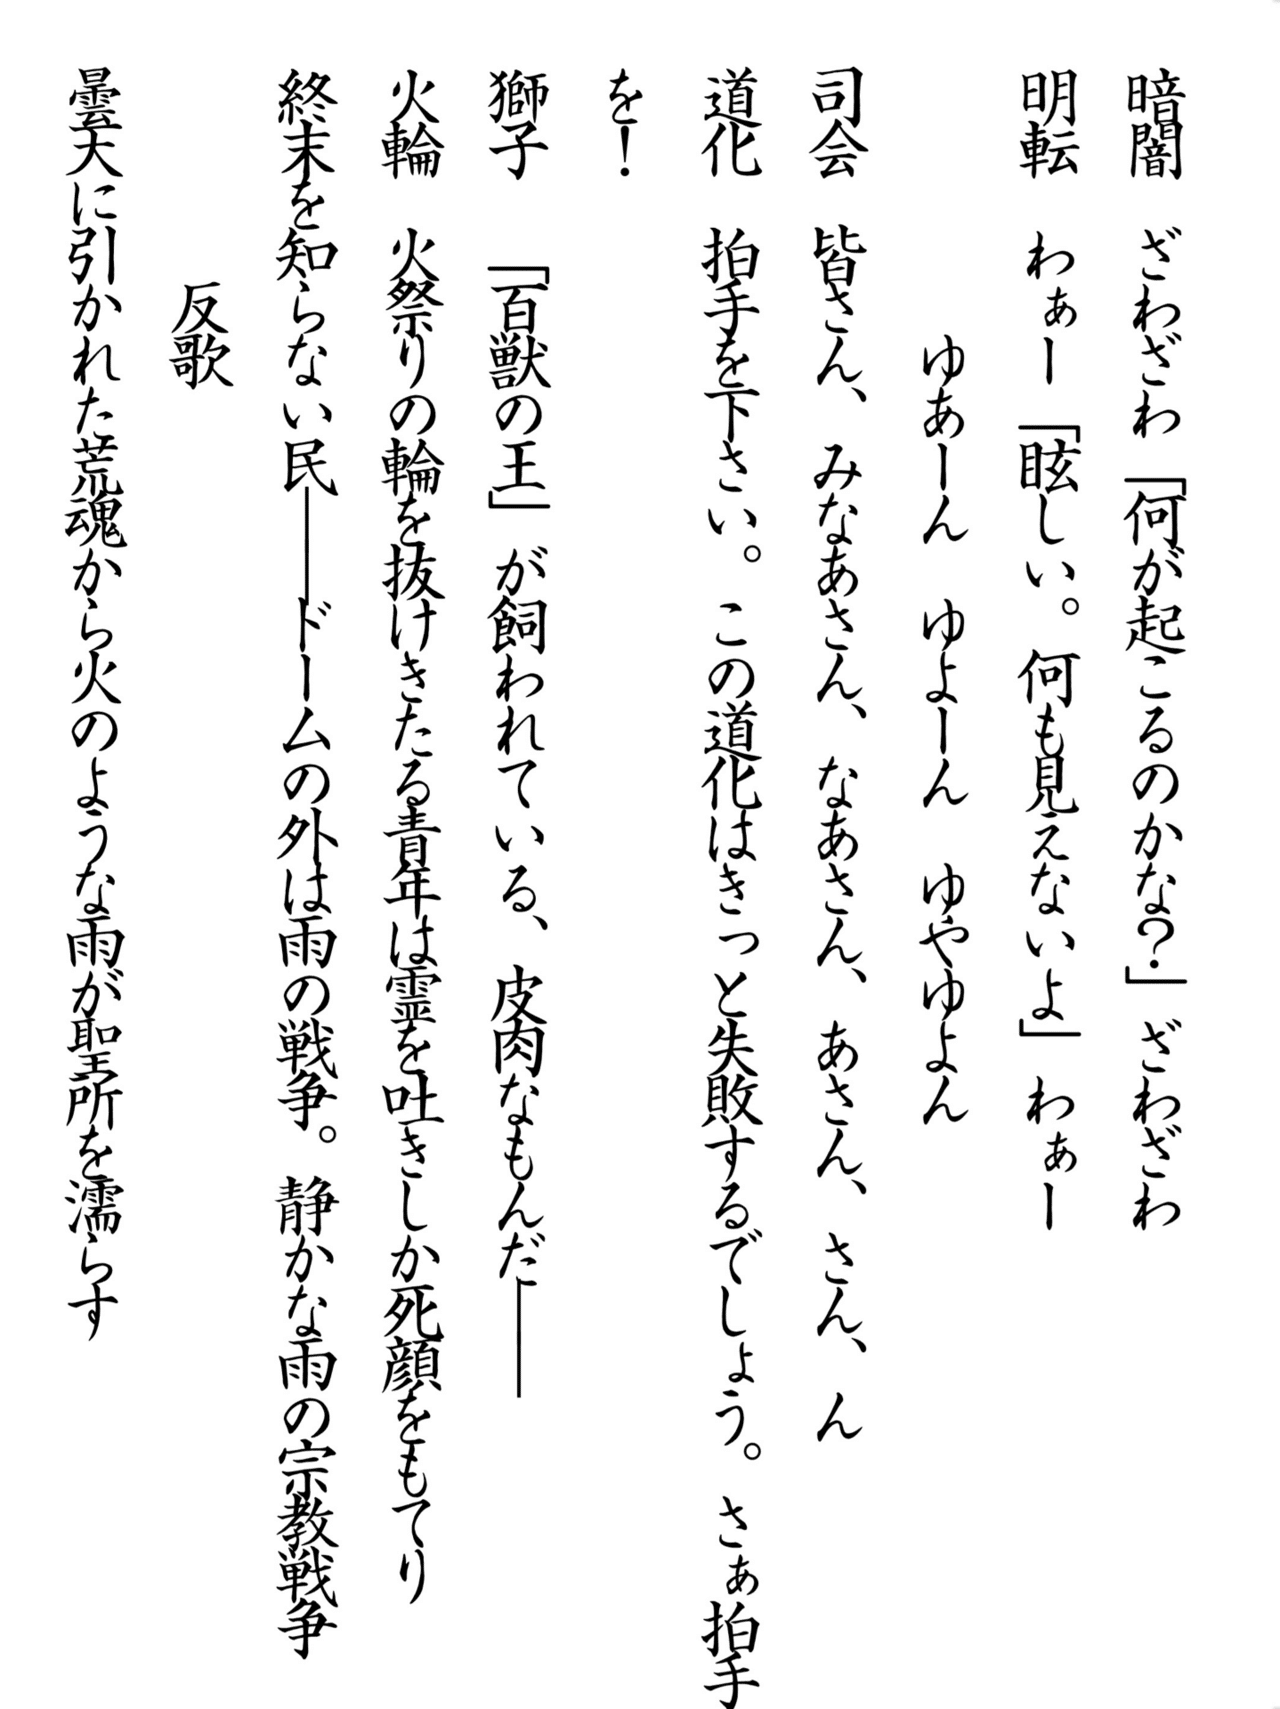 暗闇　ざわざわ「何が起こるのかな?」ざわざわ
明転　わぁー「眩しい。何も見えないよ」わぁー
ゆあーん　ゆよーん　ゆやゆよん
司会　皆さん、みなあさん、なあさん、あさん、さん、ん
道化　拍手を下さい。この道化はきっと失敗するでしょう。さぁ拍手
を!
獅子　「百獣の王」が飼われている、皮肉なもんだ――
火輪　火祭りの輪を抜けきたる青年は霊を吐きしか死顔をもてり
終末を知らない民――ドームの外は雨の戦争。静かな雨の宗教戦争
反歌
曇天に引かれた荒魂から火のような雨が聖所を濡らす